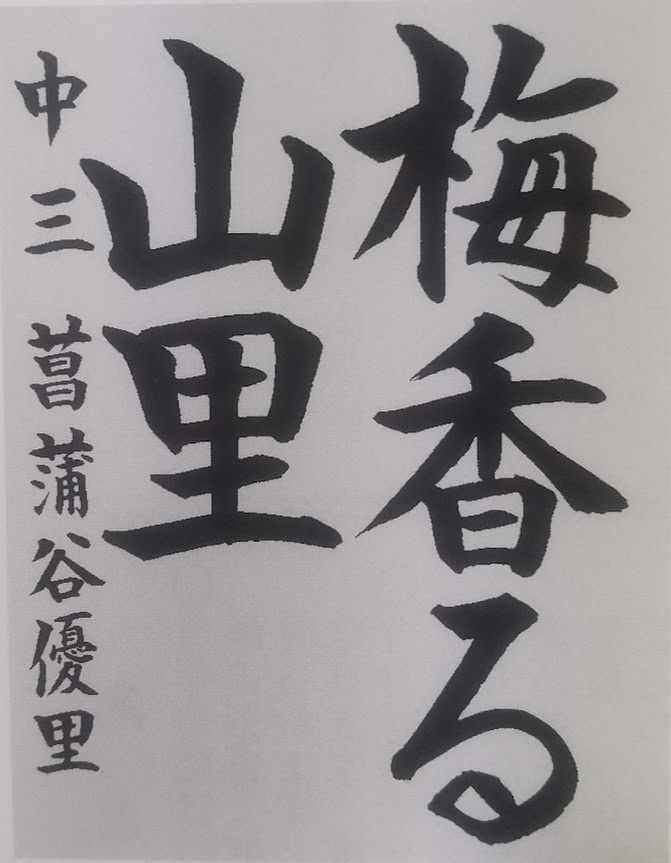 梅香る
山里
中三 菖蒲谷優里